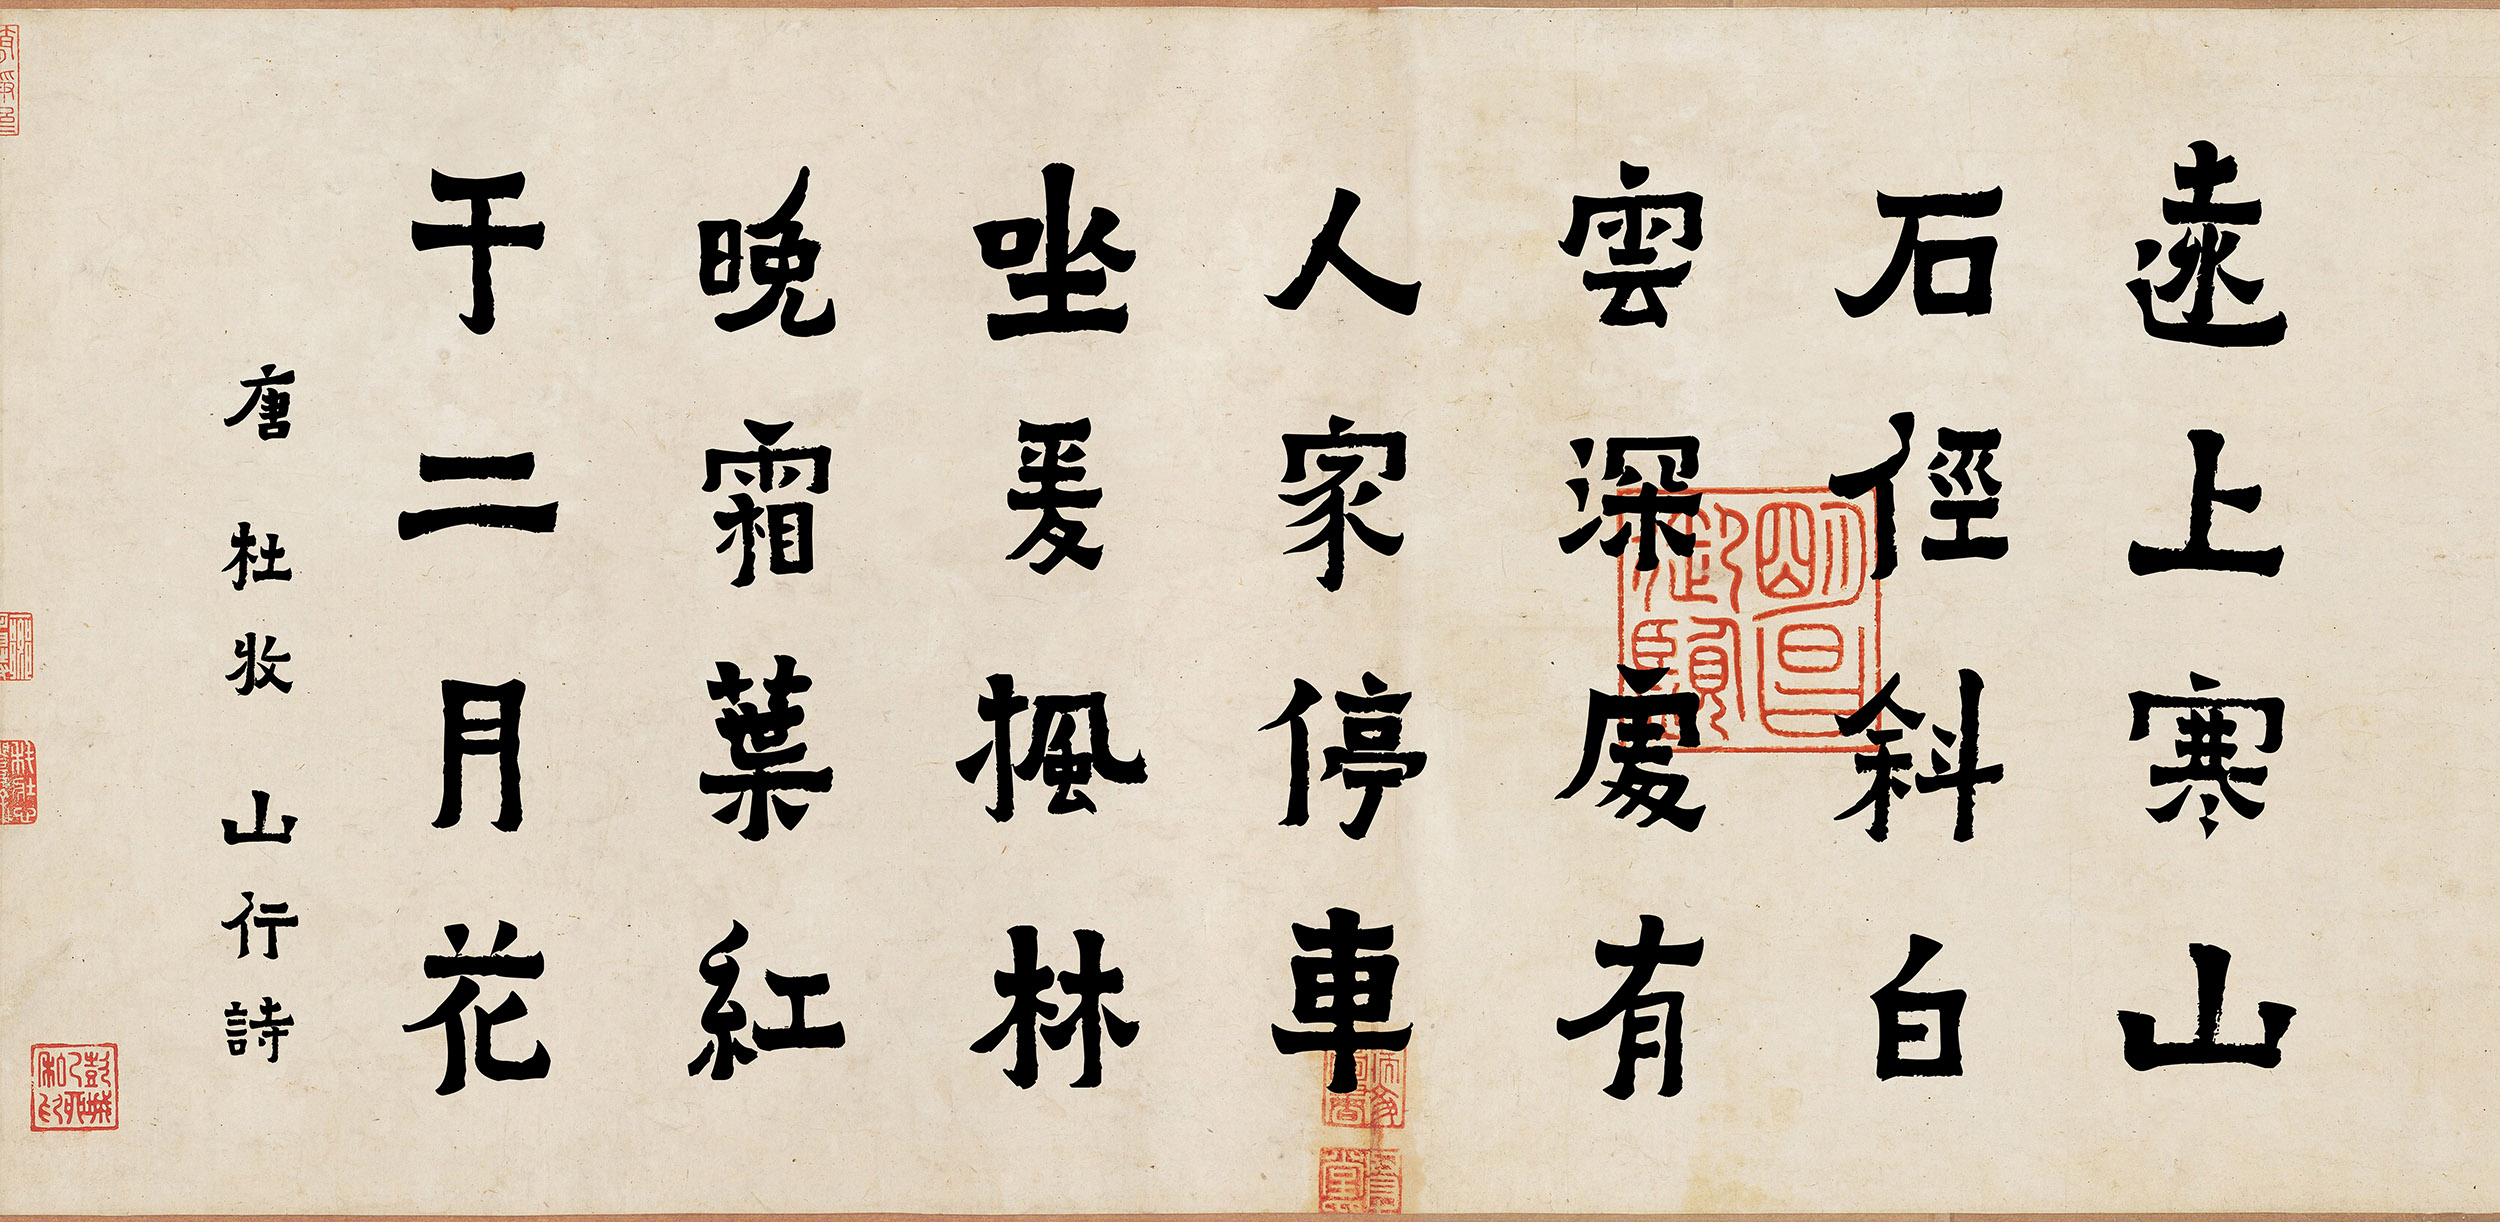 遠上寒山
石徑斜白
雲深處有
人家停車
坐愛楓林
晚霜葉紅
于二月花
唐 杜牧 山行詩
明昌
御覽